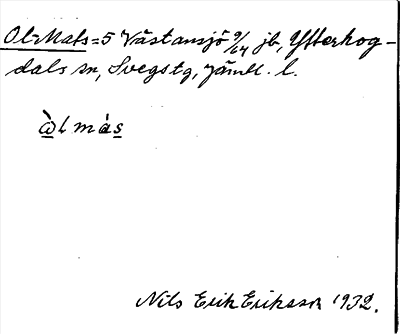 Ol-Mats = 5 Västansjö 9/64 jb, Ytterhog-
dals sn, Svegs tg, Jämtl. l.
òlmás
Nils Erik Eriksson 1932.